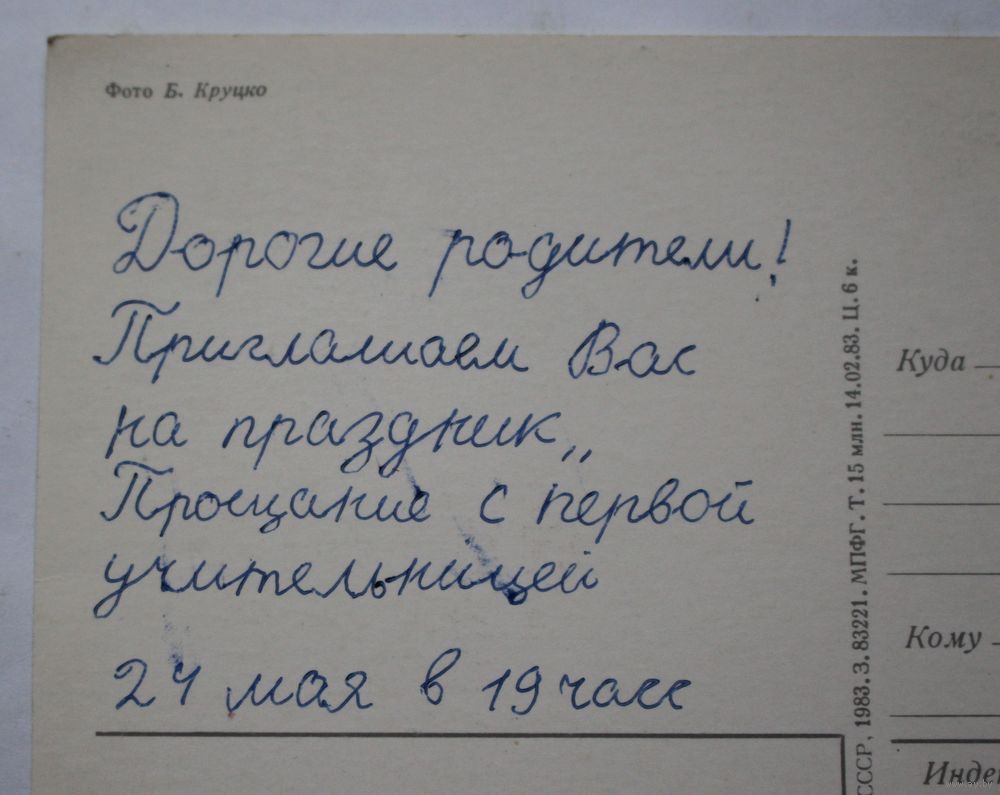 Фото Б. Круцко
Дорогие родители!
Приглашаем Вас
на праздник „
Прощание с первой
учительницей
24 мая в 19 часс
СССР, 1983. З. 83221. МПФГ. Т. 15 млн. 14.02.83. Ц. 6 к.
Куда
Кому